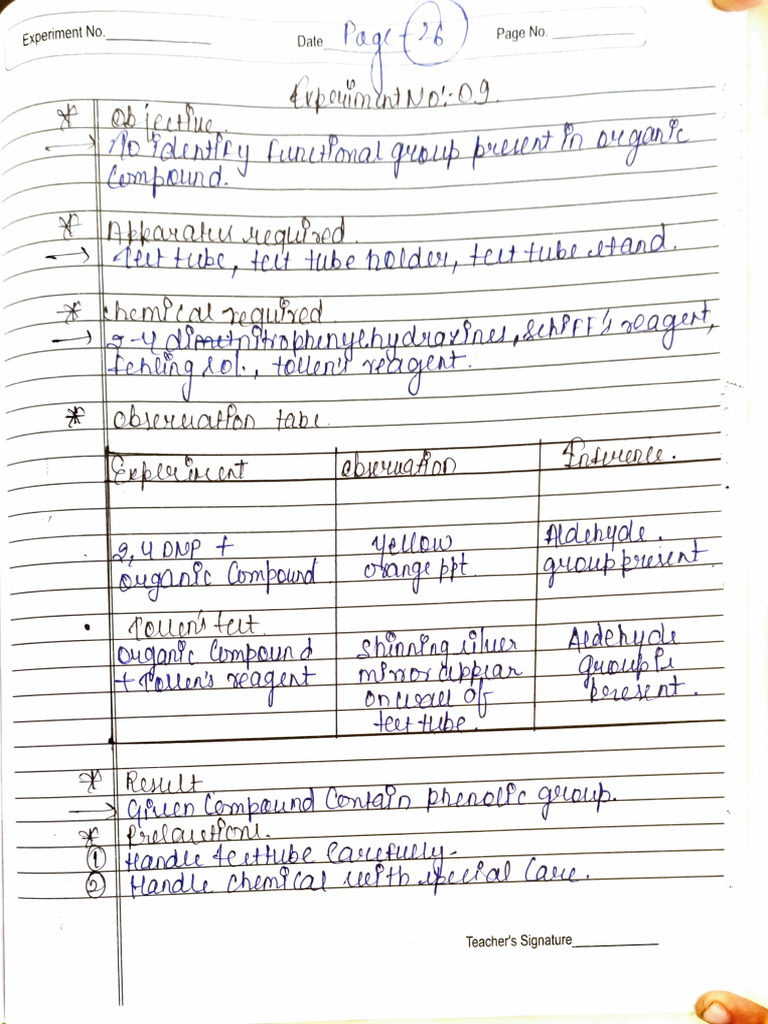 Experiment No.
Date Page - 26
Page No.
Experiment No:- 09.
* Objective.
→ No identify functional group present in organic
compound.
* Apparatus required.
→ Test tube, test tube holder, test tube stand.
* Chemical required
→ 2-4 dinitrophenylhydrazines, Schiff's reagent,
fehling sol., tollen's reagent.
* Observation tabl.
Experiment Observation Inference.
2,4 DNP + Yellow Aldehyde.
organic Compound orange ppt. group present.
• Tollen's test.
Organic Compound shinning silver Aldehyde
+ Tollen's reagent mirror appear group is
on wall of present.
test tube.
* Result
→ Given Compound Contain phenolic group.
* Precautions.
① Handle test tube Carefully.
② Handle chemical with special Care.
Teacher's Signature